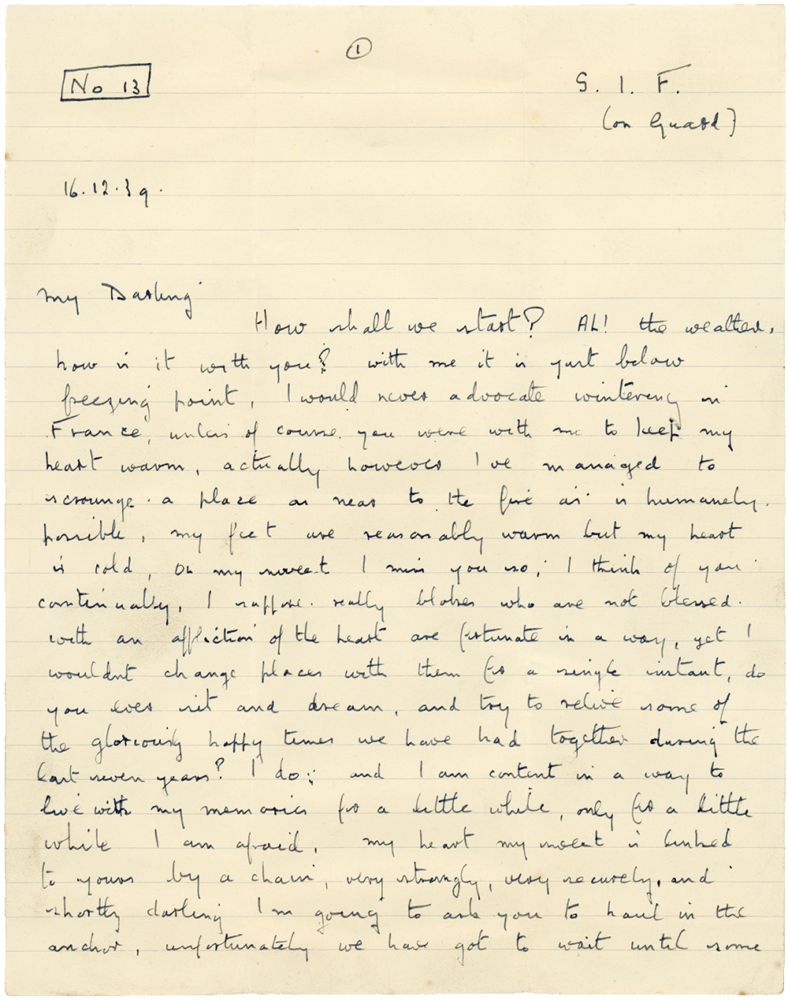 1
No 13
S. I. F.
(on Guard)
16.12.39.
My Darling
How shall we start? Ah! the weather,
how is it with you? with me it is just below
freezing point, I would never advocate wintering in
France, unless of course you were with me to keep my
heart warm, actually however I've managed to
scrounge a place as near to the fire as is humanely
possible, my feet are reasonably warm but my heart
is cold, oh my sweet I miss you so, I think of you
continually, I suppose really blokes who are not blessed
with an affliction of the heart are fortunate in a way, yet I
wouldnt change places with them for a single instant, do
you ever sit and dream, and try to relive some of
the gloriously happy times we have had together during the
last seven years? I do; and I am content in a way to
live with my memories for a little while, only for a little
while I am afraid, my heart my sweet is linked
to yours by a chain, very strongly, very securely, and
shortly darling I'm going to ask you to haul in the
anchor, unfortunately we have got to wait until some